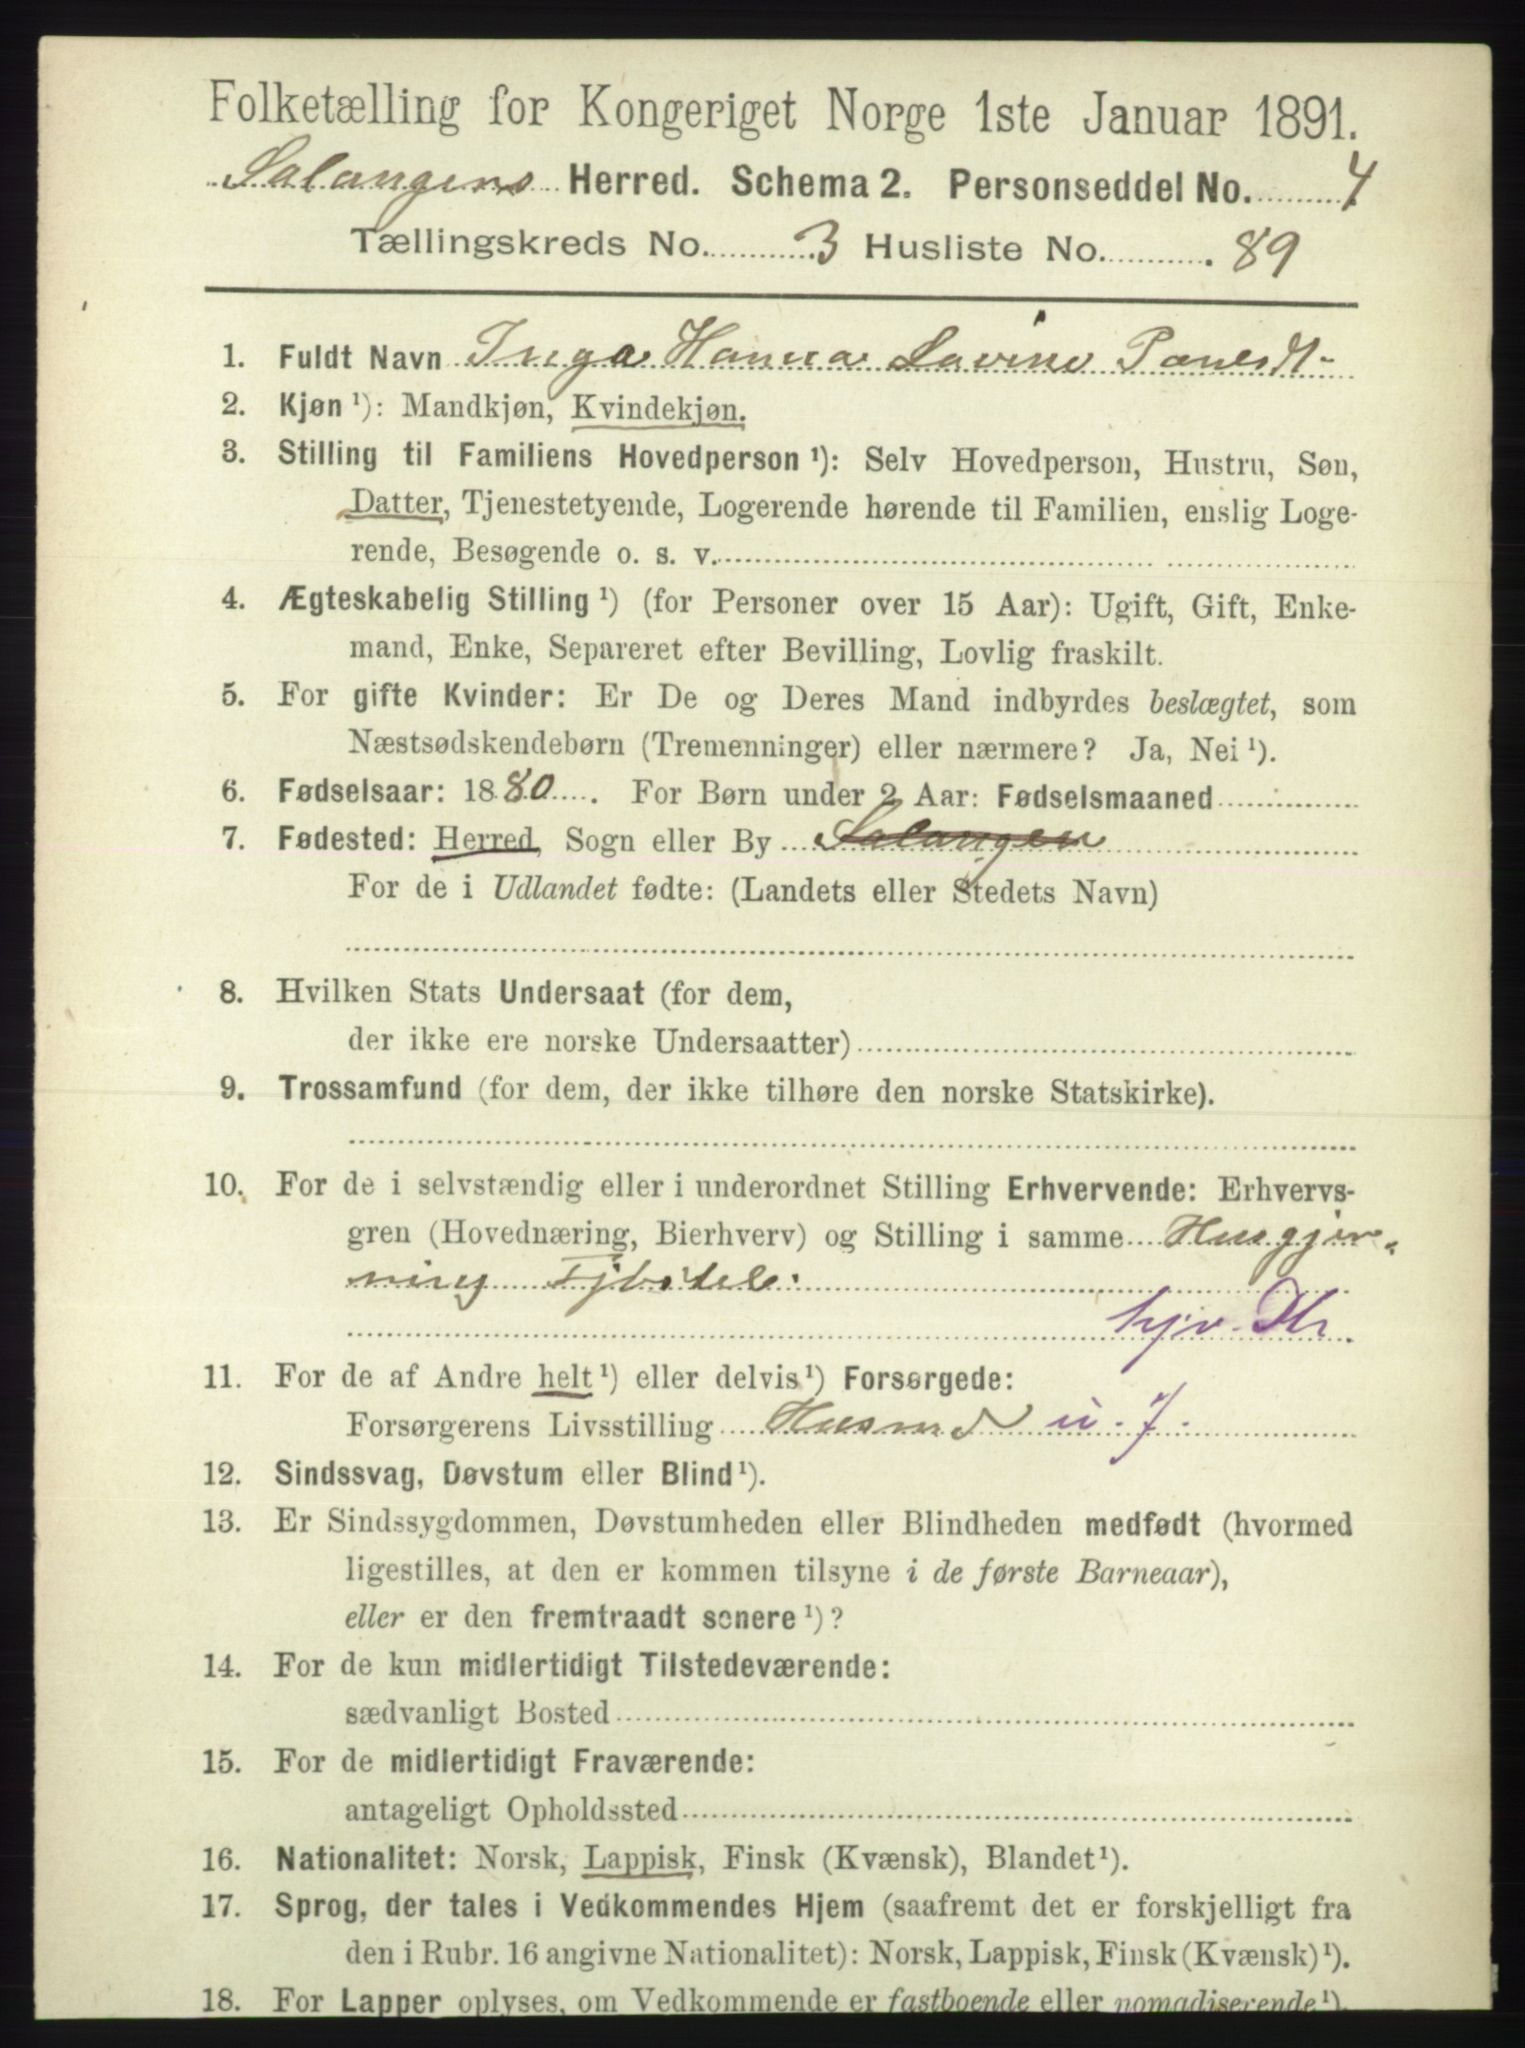 Folketælling for Kongeriget Norge 1ste Januar 1891.
Salangens Herred. Schema 2. Personseddel No. 4
Tællingskreds No. 3 Husliste No. 89
1. Fuldt Navn Inga Hanna Lovine
2. Kjøn ¹): Mandkjøn, Kvindekjøn.
3. Stilling til Familiens Hovedperson ¹): Selv Hovedperson, Hustru, Søn,
Datter, Tjenestetyende, Logerende hørende til Familien, enslig Loge-
rende, Besøgende o. s. v.
4. Ægteskabelig Stilling ¹) (for Personer over 15 Aar): Ugift, Gift, Enke-
mand, Enke, Separeret efter Bevilling, Lovlig fraskilt.
5. For gifte Kvinder: Er De og Deres Mand indbyrdes beslægtet, som
Næstsødskendebørn (Tremenninger) eller nærmere? Ja, Nei ¹).
6. Fødselsaar: 1880. For Børn under 2 Aar: Fødselsmaaned
7. Fødested: Herred, Sogn eller By Salangen
For de i Udlandet fødte: (Landets eller Stedets Navn)
8. Hvilken Stats Undersaat (for dem,
der ikke ere norske Undersaatter)
9. Trossamfund (for dem, der ikke tilhøre den norske Statskirke).
10. For de i selvstændig eller i underordnet Stilling Erhvervende: Erhvervs-
gren (Hovednæring, Bierhverv) og Stilling i samme Husgjer-
ning
hjv. Dtr.
11. For de af Andre helt ¹) eller delvis ¹) Forsørgede:
Forsørgerens Livsstilling Husmd u. J.
12. Sindssvag, Døvstum eller Blind ¹).
13. Er Sindssygdommen, Døvstumheden eller Blindheden medfødt (hvormed
ligestilles, at den er kommen tilsyne i de første Barneaar),
eller er den fremtraadt senere ¹)?
14. For de kun midlertidigt Tilstedeværende:
sædvanligt Bosted
15. For de midlertidigt Fraværende:
antageligt Opholdssted
16. Nationalitet: Norsk, Lappisk, Finsk (Kvænsk), Blandet ¹).
17. Sprog, der tales i Vedkommendes Hjem (saafremt det er forskjelligt fra
den i Rubr. 16 angivne Nationalitet): Norsk, Lappisk, Finsk (Kvænsk) ¹).
18. For Lapper oplyses, om Vedkommende er fastboende eller nomadiserende ¹).